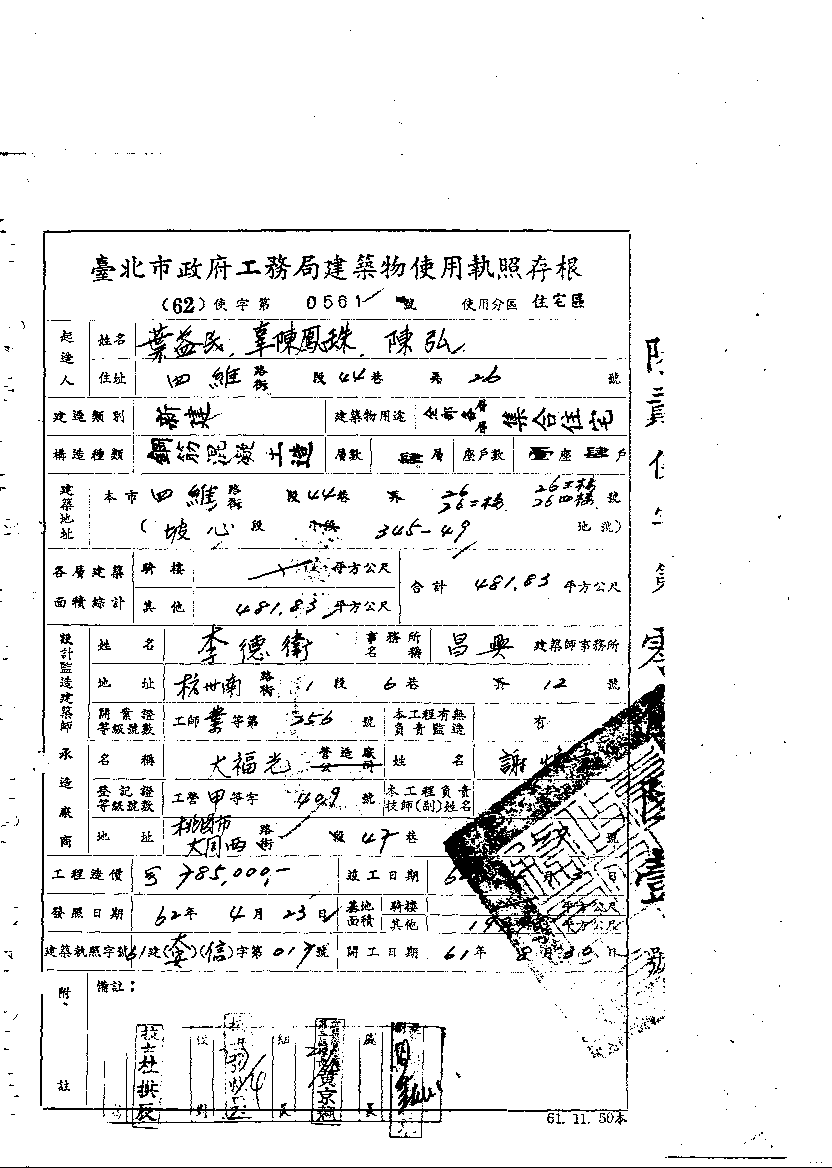 臺北市政府工務局建築物使用執照存根
(62)使字第 0561 號 使用分區 住宅區
起造人 姓名 葉益民、辜陳鳳珠、陳弘
住址 四維路街 段44巷 弄26號
建造類別 新建 建築物用途 全部各層 集合住宅
構造種類 鋼筋混凝土造 層數 肆層 座戶數 壹座肆戶
建築地址 本市四維路街 段44巷 弄 26 26二樓 26三樓 26四樓 號
(坡心段 小段 345-49 地號)
各層建築面積綜計 騎樓 平方公尺 合計 481.83 平方公尺
其他 481.83 平方公尺
設計監造建築師 姓名 李德衛 事務所名稱 昌興 建築師事務所
地址 杭州南路街 1段 6巷 弄 12號
開業證等級號數 工師業等第 356 號 本工程有無負責監造 有
承造廠商 名稱 大福光 營造廠公司 姓名 謝
登記證等級號數 工營甲等字 409 號 本工程負責技師(副)姓名
地址 桃園市大同西路街 段47巷 號
工程造價 785,000,- 竣工日期 6 月 日
發照日期 62年4月23日 基地面積 騎樓 平方公尺
其他 平方公尺
建築執照字號 61建(大安)(信)字第017號 開工日期 61年8月30日
附註 備註：
組長 處長
61.11.50本
號